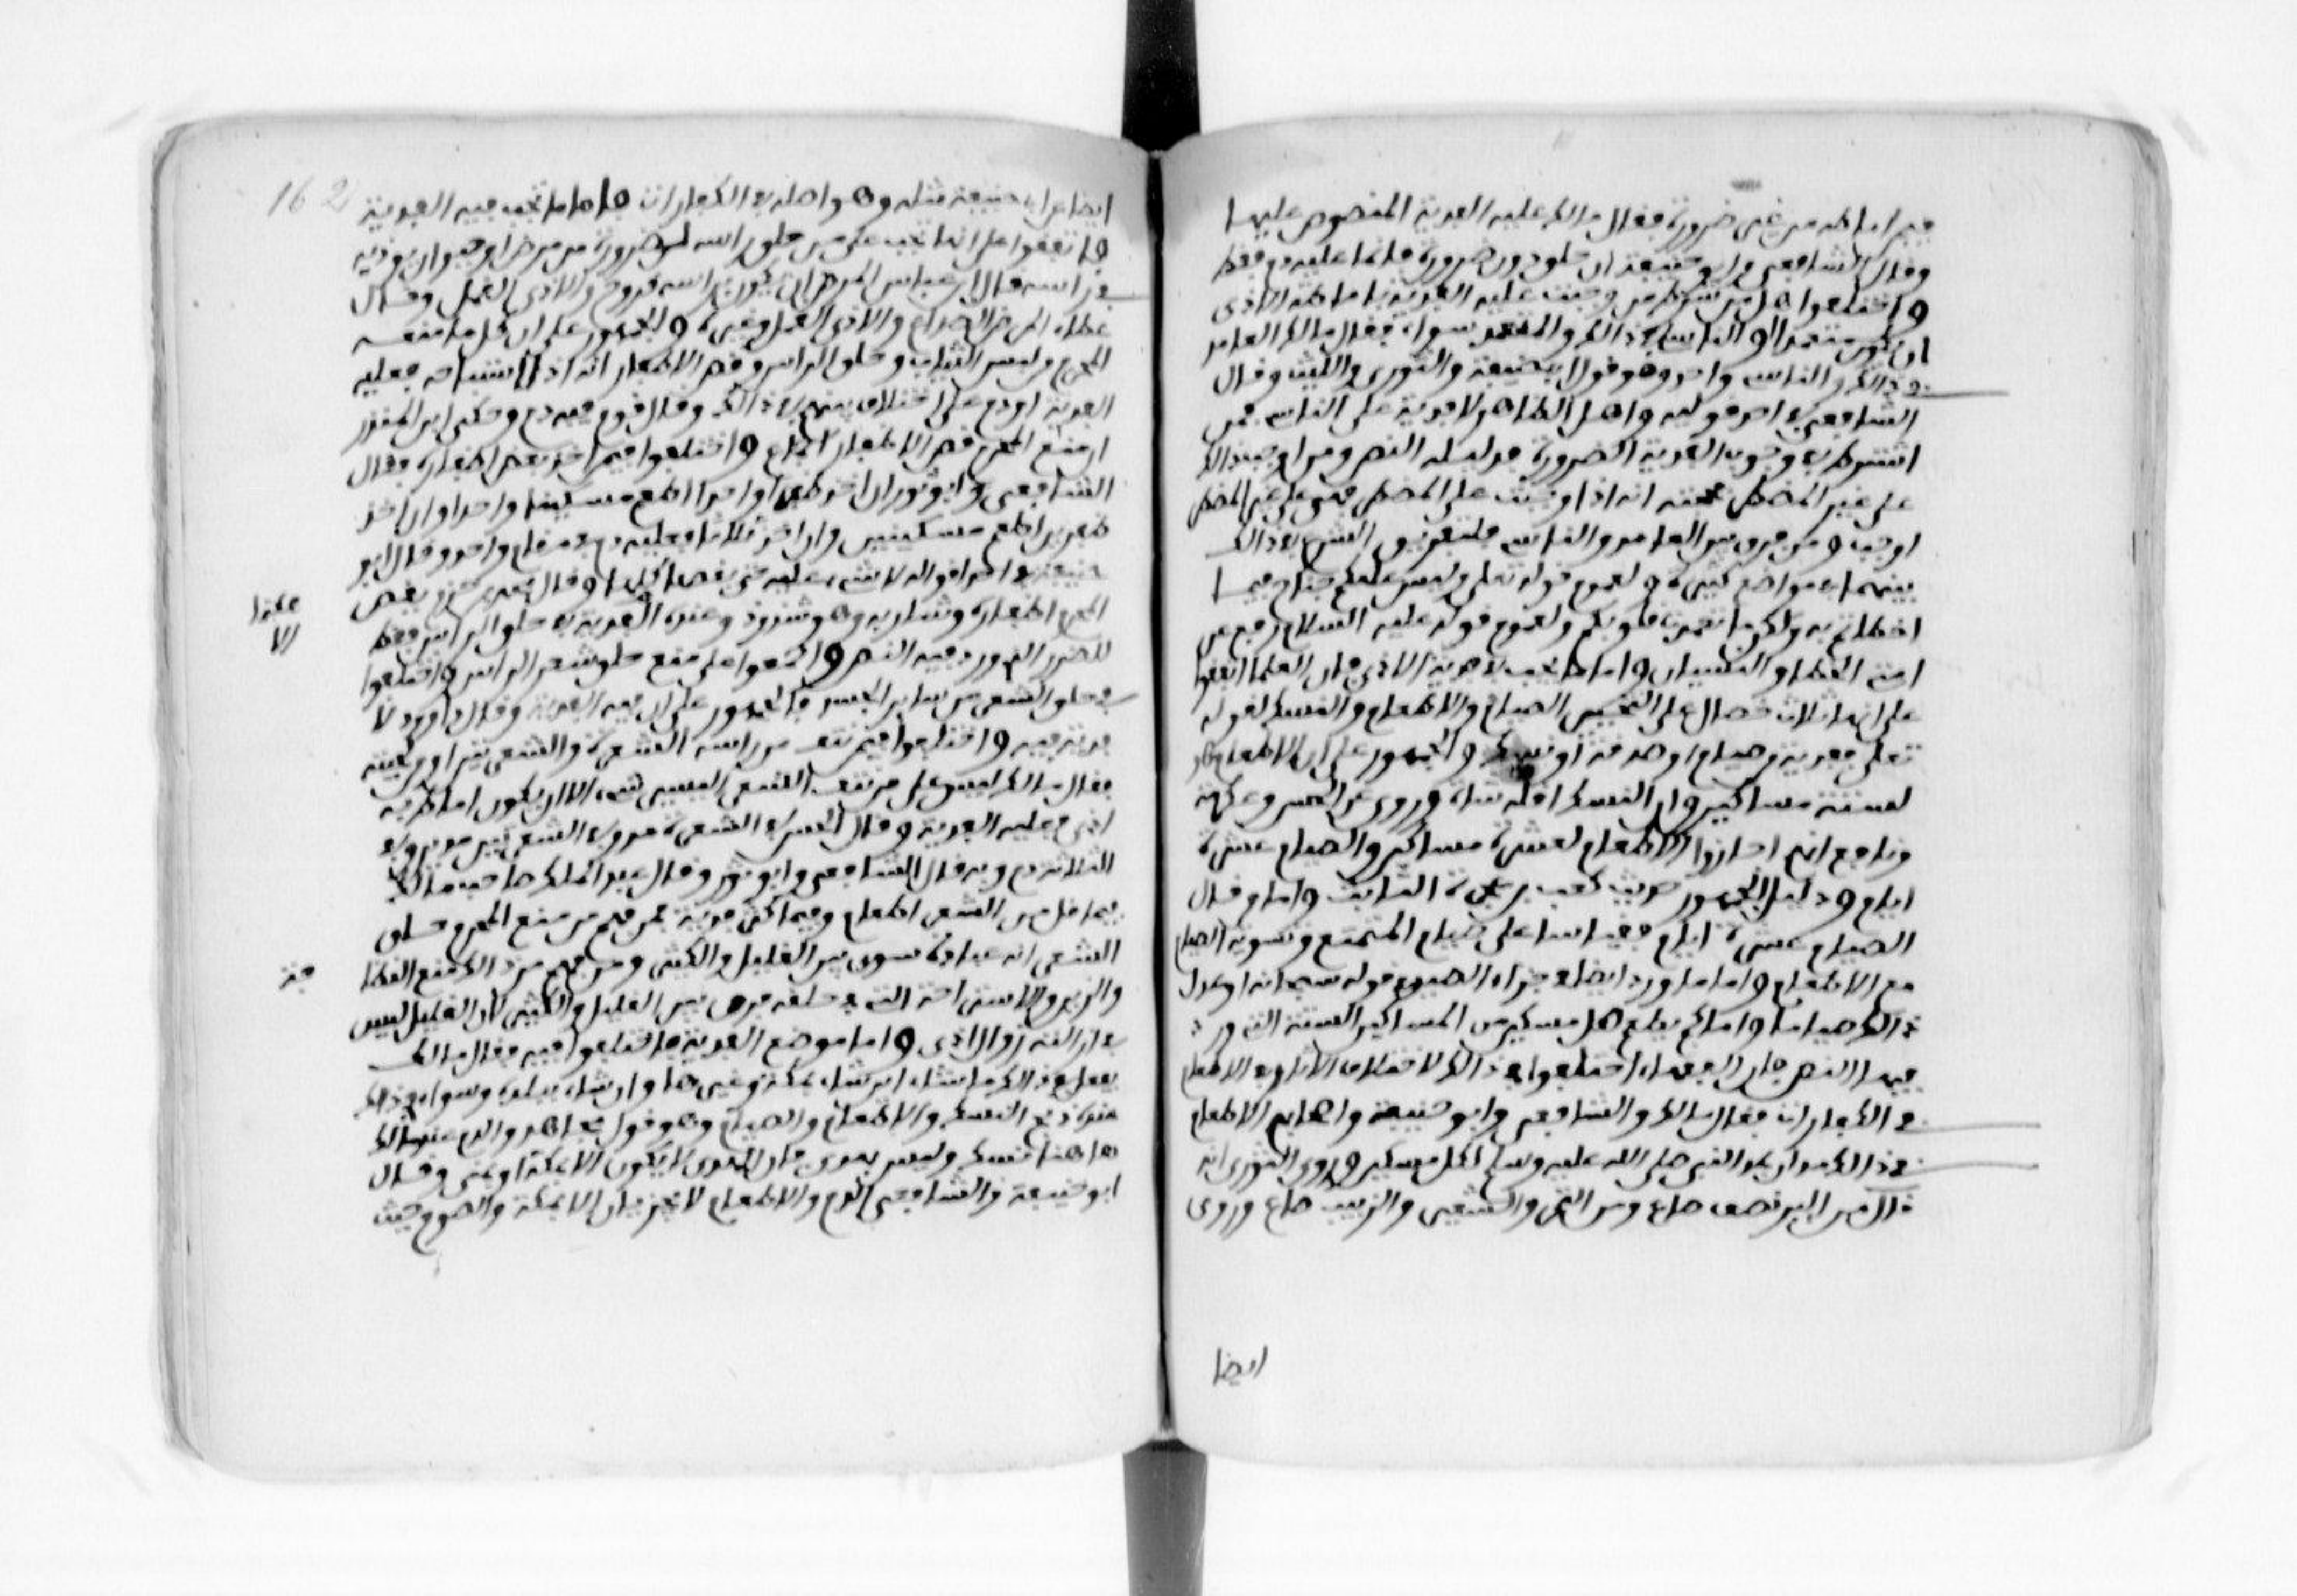 فيمن اماطه من غير ضرورة فقال مالك عليه الفدية المنصوص عليها
وقال الشافعي وابو حنيفة ان حلق دون ضرورة فانما عليه دم فقط
واختلفوا هل من شرط من وجبت عليه الفدية باماطة الاذى
ان يكون متعمدا او الناسي في ذالك والمتعمد سواء فقال مالك العامد
في ذالك والناسي واحد وهو قول ابي حنيفة والثوري والليث وقال
الشافعي في احد قوليه واهل الظاهر لا فدية على الناسي فمن
اشترط في وجوب الفدية الضرورة فدليله النص ومن اوجب ذالك
على غير المضطر فحجته انه اذا وجبت على المضطر فهي على غير المضطر
اوجب ومن فرق بين العامد والناسي فلتفريق الشرع في ذالك
بينهما في مواضع كثيرة ولعموم قوله تعلى وليس عليكم جناح فيما
اخطاتم به ولكن ما تعمدت قلوبكم ولعموم قوله عليه السلام رفع عن
امتي الخطا والنسيان واما ما يجب في فدية الاذى فان العلما اتفقوا
على انها ثلاث خصال على التخيير الصيام والاطعام والنسك لقوله
تعلى ففدية من صيام او صدقة او نسك والجمهور على ان الاطعام هو
لستة مساكين وان النسك اقله شاة وروي عن الحسن وعكرمة
ونافع انهم اجازوا الاطعام لعشرة مساكين والصيام عشرة
ايام ودليل الجمهور حديث كعب بن عجرة الثابت واما من قال
الصيام عشرة ايام فقياسا على صيام المتمتع وتسوية الصيام
مع الاطعام واما ما ورد ايضا في جزاء الصيد في قوله سبحانه او عدل
ذالك صياما واما كم يطعم كل مسكين من المساكين الستة التي ورد
فيها النص فان الفقهاء اختلفوا في ذالك لاختلاف الاثار في الاطعام
في الكفارات فقال مالك والشافعي وابو حنيفة واصحابهم الاطعام
في ذالك مدان بمد النبي صلى الله عليه وسلم لكل مسكين وروي عن الثوري انه
قال من البر نصف صاع ومن التمر والشعير والزبيب صاع وروي
ايضا
162
ايضا عن ابي حنيفة مثله وهو اصله في الكفارات واما ما تجب فيه الفدية
فاتفقوا على انها تجب على من حلق راسه لضرورة من مرض او حيوان يوذيه
في راسه قال ابن عباس المرض ان يكون براسه قروح والاذى القمل وقال
عطاء المرض الصداع والاذى القمل وغيره والجمهور على ان كل ما منعه
المحرم من لبس الثياب وحلق الراس وقص الاظفار انه اذا استباحه فعليه
الفدية او دم على اختلاف بينهم في ذالك وقال قوم فيه دم وحكى ابن المنذر
ان منع المحرم قص الاظفار اجماع واختلفوا فيمن اخذ بعض اظفاره فقال
الشافعي وابو ثور ان اخذ ظفرا واحدا اطعم مسكينا واحدا وان اخذ
ظفرين اطعم مسكينين وان اخذ ثلاثا فعليه دم في مقام واحد وقال ابو
حنيفة في احد اقواله لا شيء عليه حتى يقصها كلها وقال محمد بن حزم يقص
المحرم اظفاره وشاربه وهو شذوذ وعنده الا فدية الا في حلق الراس فقط
للعذر الذي ورد فيه النص واجمعوا على منع حلق شعر الراس واختلفوا
في حلق الشعر من ساير الجسد فالجمهور على ان فيه الفدية وقال داوود لا
فدية فيه واختلفوا فيمن نتف من راسه الشعرة والشعرتين او من لحيته
فقال مالك ليس على من نتف الشعر اليسير شيء الا ان يكون اماط به
اذى فعليه الفدية وقال الحسن في الشعرة مد وفي الشعرتين مدين وفي
الثلاثة دم وبه قال الشافعي وابو ثور وقال عبد الملك صاحب مالك
فيما قل من الشعر اطعام وفيما كثر فدية فمن فهم من منع المحرم حلق
الشعر انه عبادة سوى بين القليل والكثير ومن فهم من ذالك منع النظا
والزين والاستراحة التي في حلقه فرق بين القليل والكثير لان القليل ليس
في ازالته زوال اذى واما موضع الفدية فاختلفوا فيه فقال مالك
يفعل في ذالك ما شاء اين شاء بمكة وغيرها وان شاء ببلده وسواء في ذالك
عنده ذبح النسك والاطعام والصيام وهو قول مجاهد والذي عند مالك
هاهنا نسك وليس بهدي فان الهدي لا يكون الا بمكة او منى وقال
ابو حنيفة والشافعي الدم والاطعام لا يجزيان الا بمكة والصوم حيث
عكذا
الا
فة